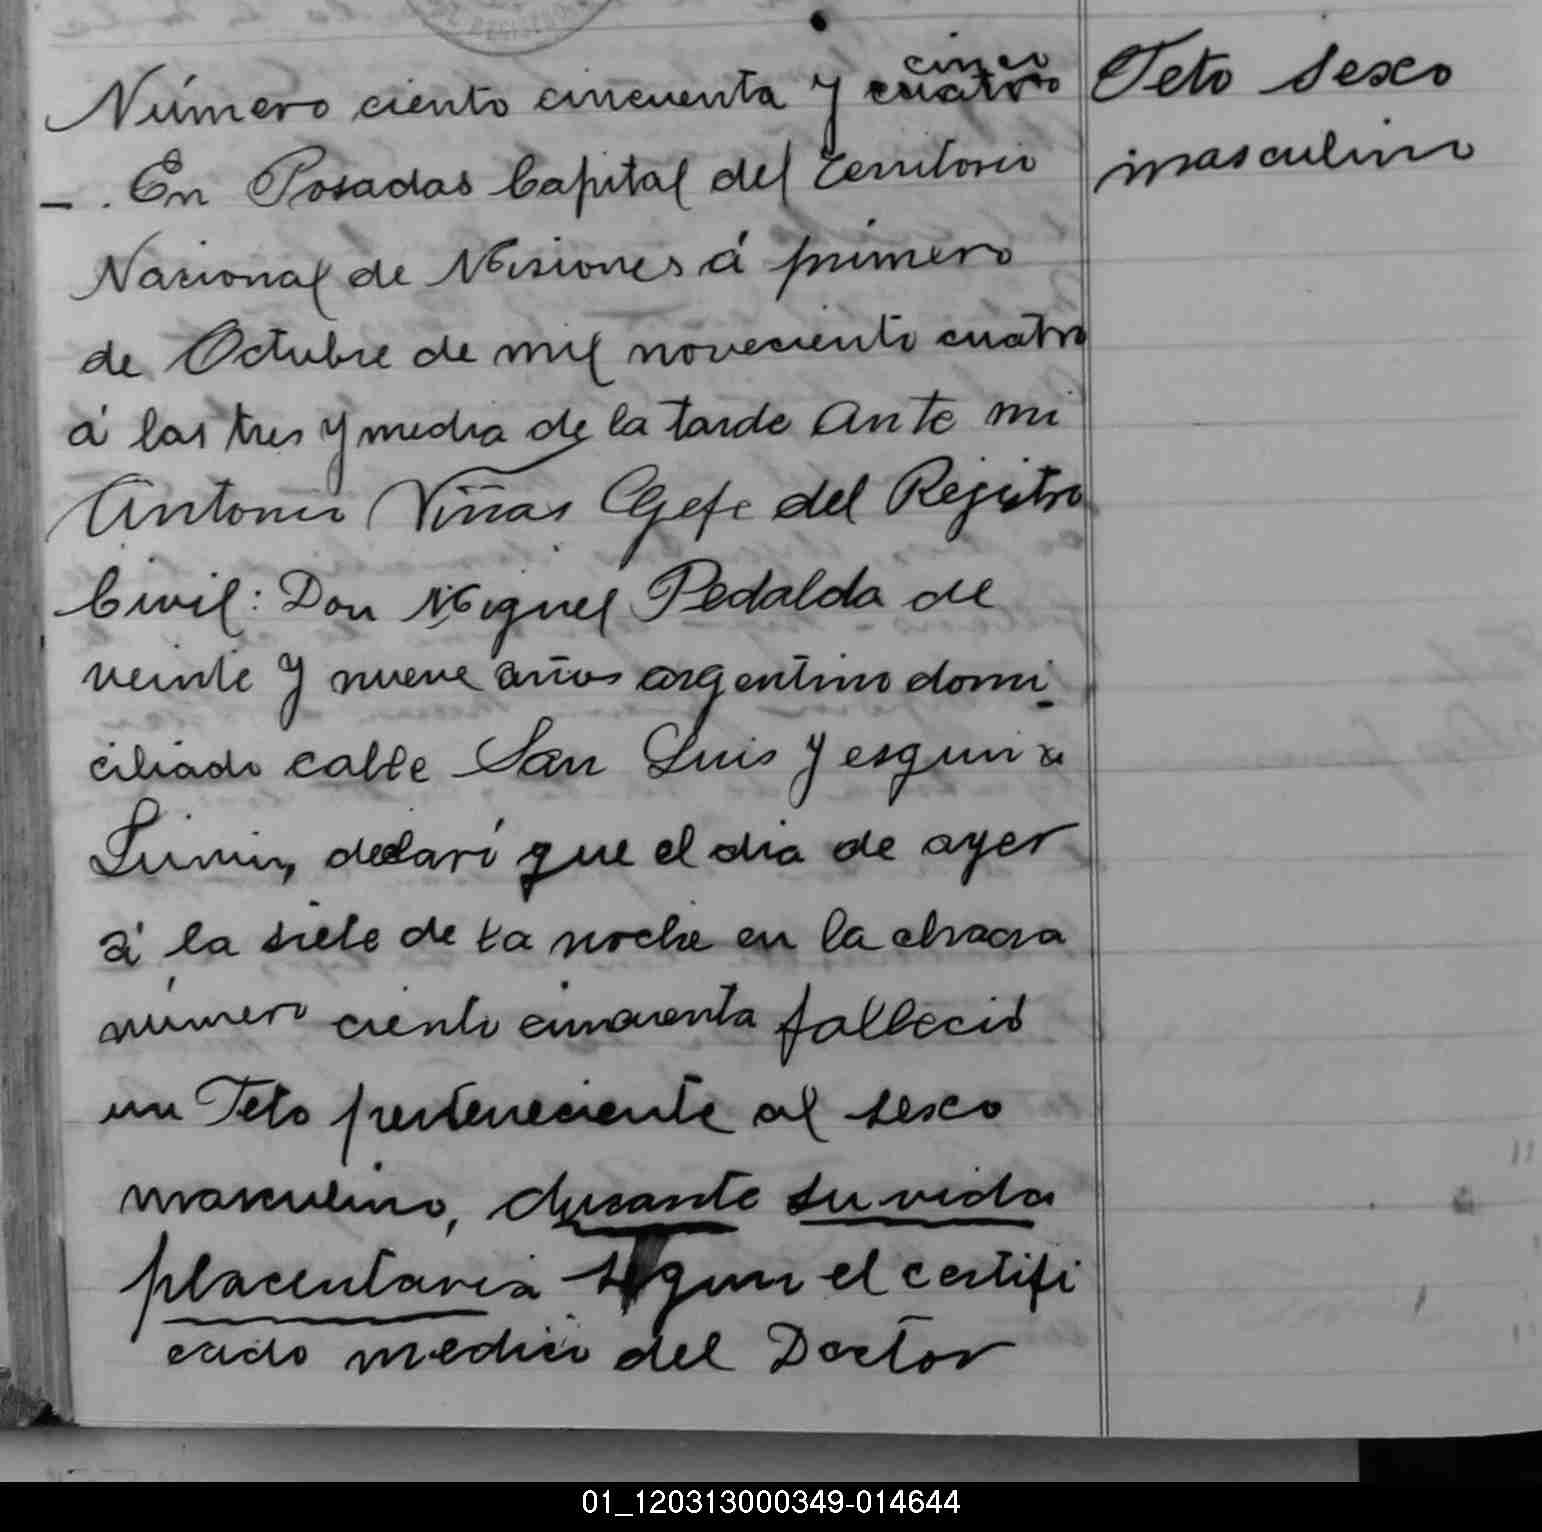 Número ciento cincuenta y cuatro cinco
-. En Posadas Capital del Territorio
Nacional de Misiones á primero
de Octubre de mil noveciento cuatro
á las tres y media de la tarde ante mi
Antonio Viñas Gefe del Rejistro
Civil: Don Miguel Pedalda de
veinte y nueve años argentino domi
ciliado calle San Luis y esquina
declaró que el dia de ayer
á la siete de la noche en la chacra
número ciento cincuenta falleció
un Feto perteneciente al sesco
masculino, durante su vida
placentaria segun el certifi
cado medico del Doctor
Feto sesco
masculino
01_120313000349-014644